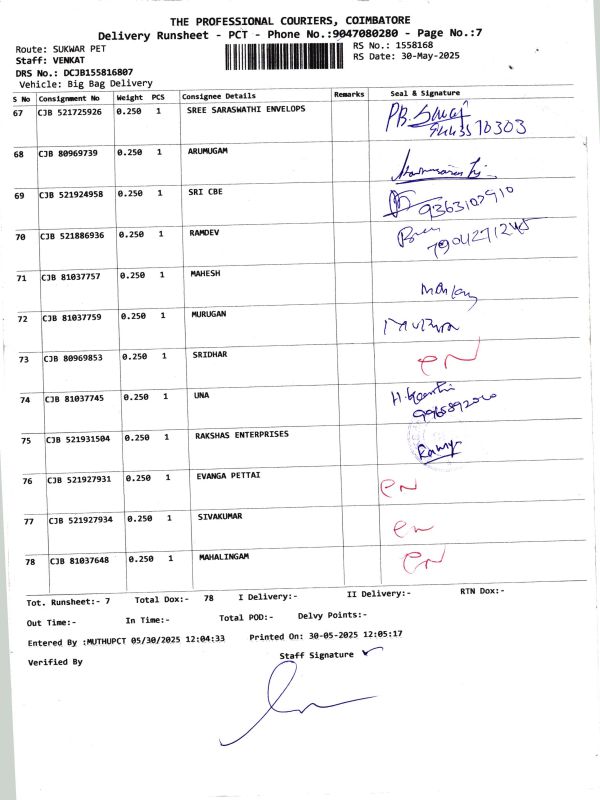 THE PROFESSIONAL COURIERS, COIMBATORE
Delivery Runsheet - PCT - Phone No.:9047080280 - Page No.:7
Route: SUKWAR PET RS No.: 1558168
Staff: VENKAT RS Date: 30-May-2025
DRS No.: DCJB155816807
Vehicle: Big Bag Delivery
S No Consignment No Weight PCS Consignee Details Remarks Seal & Signature
67 CJB 521725926 0.250 1 SREE SARASWATHI ENVELOPS
68 CJB 80969739 0.250 1 ARUMUGAM
69 CJB 521924958 0.250 1 SRI CBE 9363102910
70 CJB 521886936 0.250 1 RAMDEV
71 CJB 81037757 0.250 1 MAHESH
72 CJB 81037759 0.250 1 MURUGAN
73 CJB 80969853 0.250 1 SRIDHAR
74 CJB 81037745 0.250 1 UNA
75 CJB 521931504 0.250 1 RAKSHAS ENTERPRISES
76 CJB 521927931 0.250 1 EVANGA PETTAI
77 CJB 521927934 0.250 1 SIVAKUMAR
78 CJB 81037648 0.250 1 MAHALINGAM
Tot. Runsheet:- 7 Total Dox:- 78 I Delivery:- II Delivery:- RTN Dox:-
Out Time:- In Time:- Total POD:- Delvy Points:-
Entered By :MUTHUPCT 05/30/2025 12:04:33 Printed On: 30-05-2025 12:05:17
Verified By Staff Signature